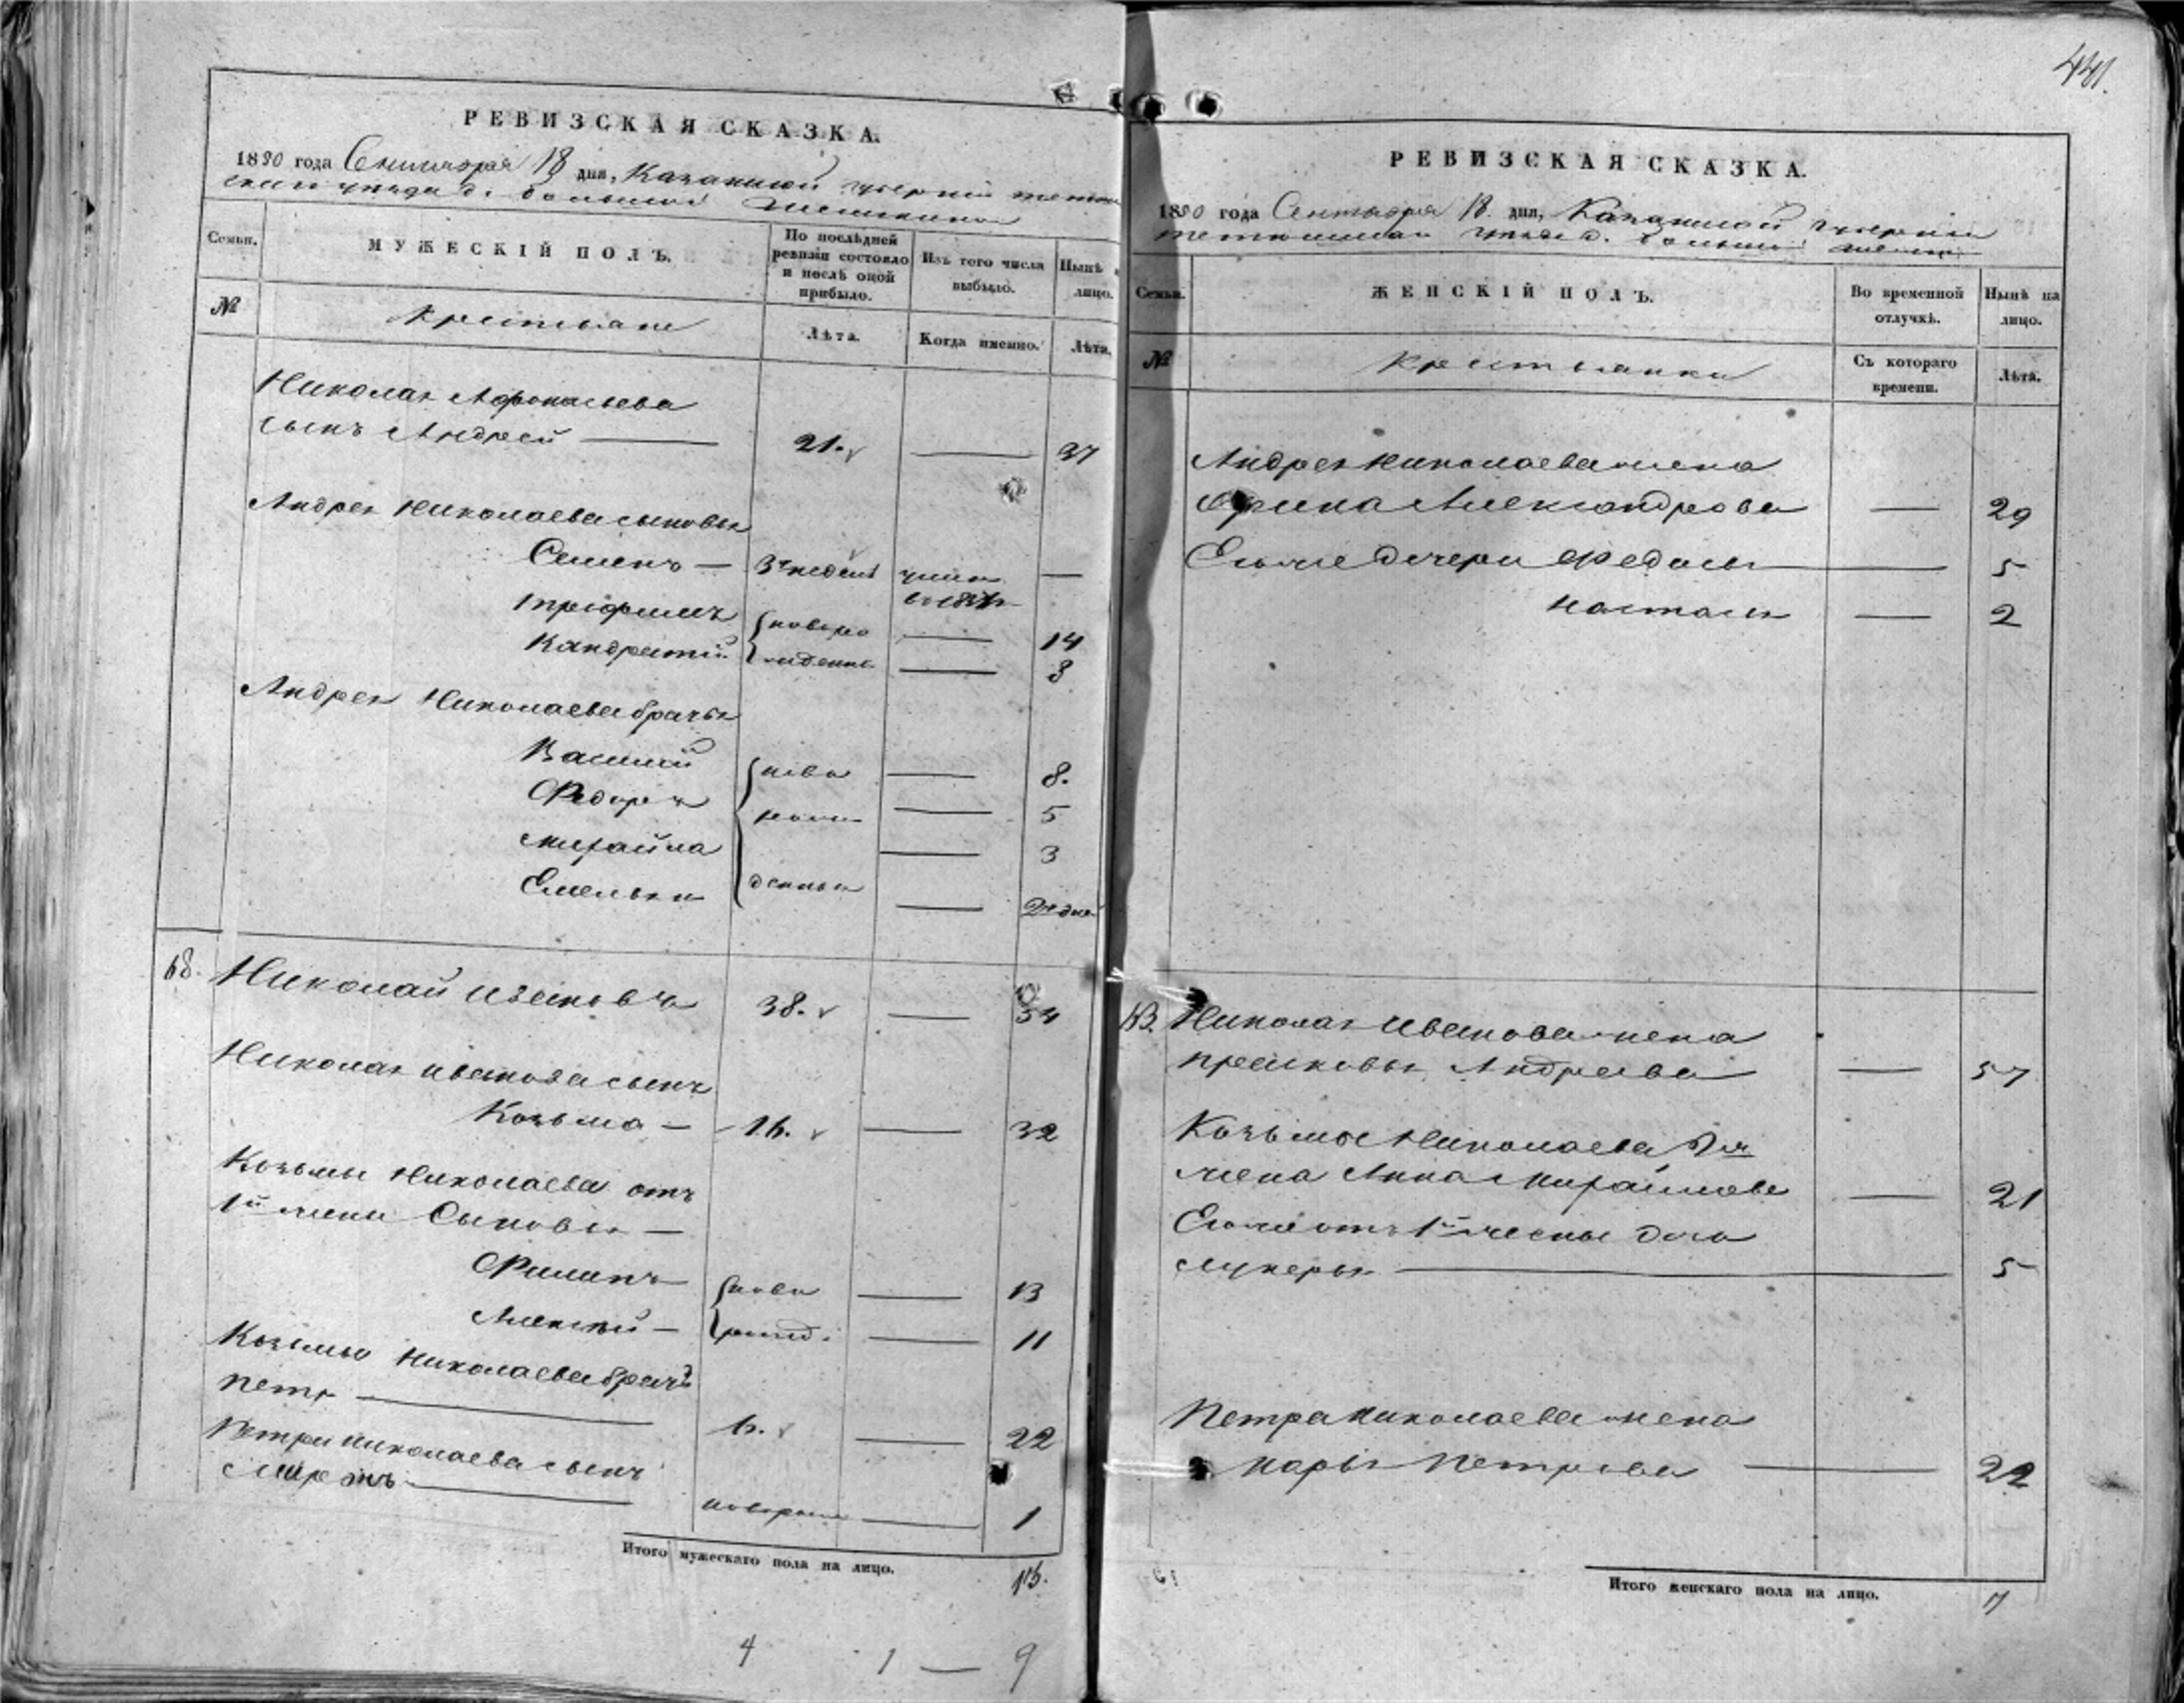 РЕВИЗСКАЯ СКАЗКА.
1850 года Сентября 18 дня, Казанской губернии тетю
скаго уезда д. большой
Семьи.
МУЖЕСКІЙ ПОЛЪ.
По послѣдней ревизіи состояло и послѣ оной прибыло.
Изъ того числа выбыло.
Нынѣ лицо.
№
крестьяне
Лѣта.
Когда именно.
Лѣта.
Николая Афонасьева
сынъ Андрей — 21. — 37
Андрея Николаева сыновья
Семенъ — 3 недели —
Трефимъ новоро — 14
Кандратий жденны — 3
Андрея Николаева братья
Василий ново — 8.
Федоръ рож — 5
Михайла — 3
Емельян денныя —
68. Николай Ивановъ 38. — 54
Николая Иванова сынъ
Козьма — 16. — 32
Козьмы Николаева отъ
1й жены Сыновья —
Филипъ ново — 13
Алексей — рожд: — 11
Козьмы Николаева братъ
петръ — 6. — 22
Петра Николаева сынъ
— новорож — 1
Итого мужескаго пола на лицо. 13.
4 1 — 9
441.
РЕВИЗСКАЯ СКАЗКА.
1850 года Сентября 18. дня, Казанской губернии
тетюшскаго уезда д. большой
Семьи.
ЖЕНСКІЙ ПОЛЪ.
Во временной отлучкѣ.
Нынѣ на лицо.
№
крестьянки
Съ котораго времени.
Лѣта.
Андрея Николаева жена
Орина Александрова — 29
Ево же дочери Федось — 5
настась — 2
68. Николая Иванова жена
прасковья Андреева — 57
Козьмы Николаева 2я
жена Анна Михайлова — 21
Ево же отъ 1й жены дочь
лукерья — 5
Петра Николаева жена
марья Петрова — 22
Итого женскаго пола на лицо. 7